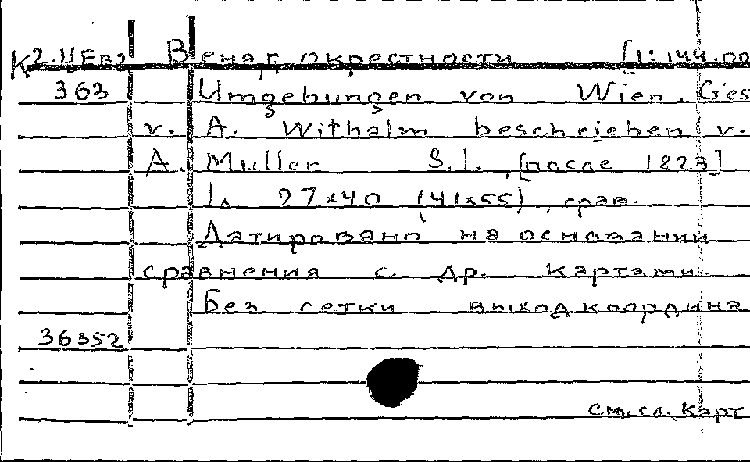 К2.ЦЕв2 Вена, окрестности [1:144.00
363 Umgebungen von Wien. Ges
v. A. Withalm beschrieben v.
A. Muller S.l. [после 1823]
1л 27x40 (41x55), грав.
Датировано на основании
сравнения с др. картами
Без сетки выход координа
36352
см. сл. карт